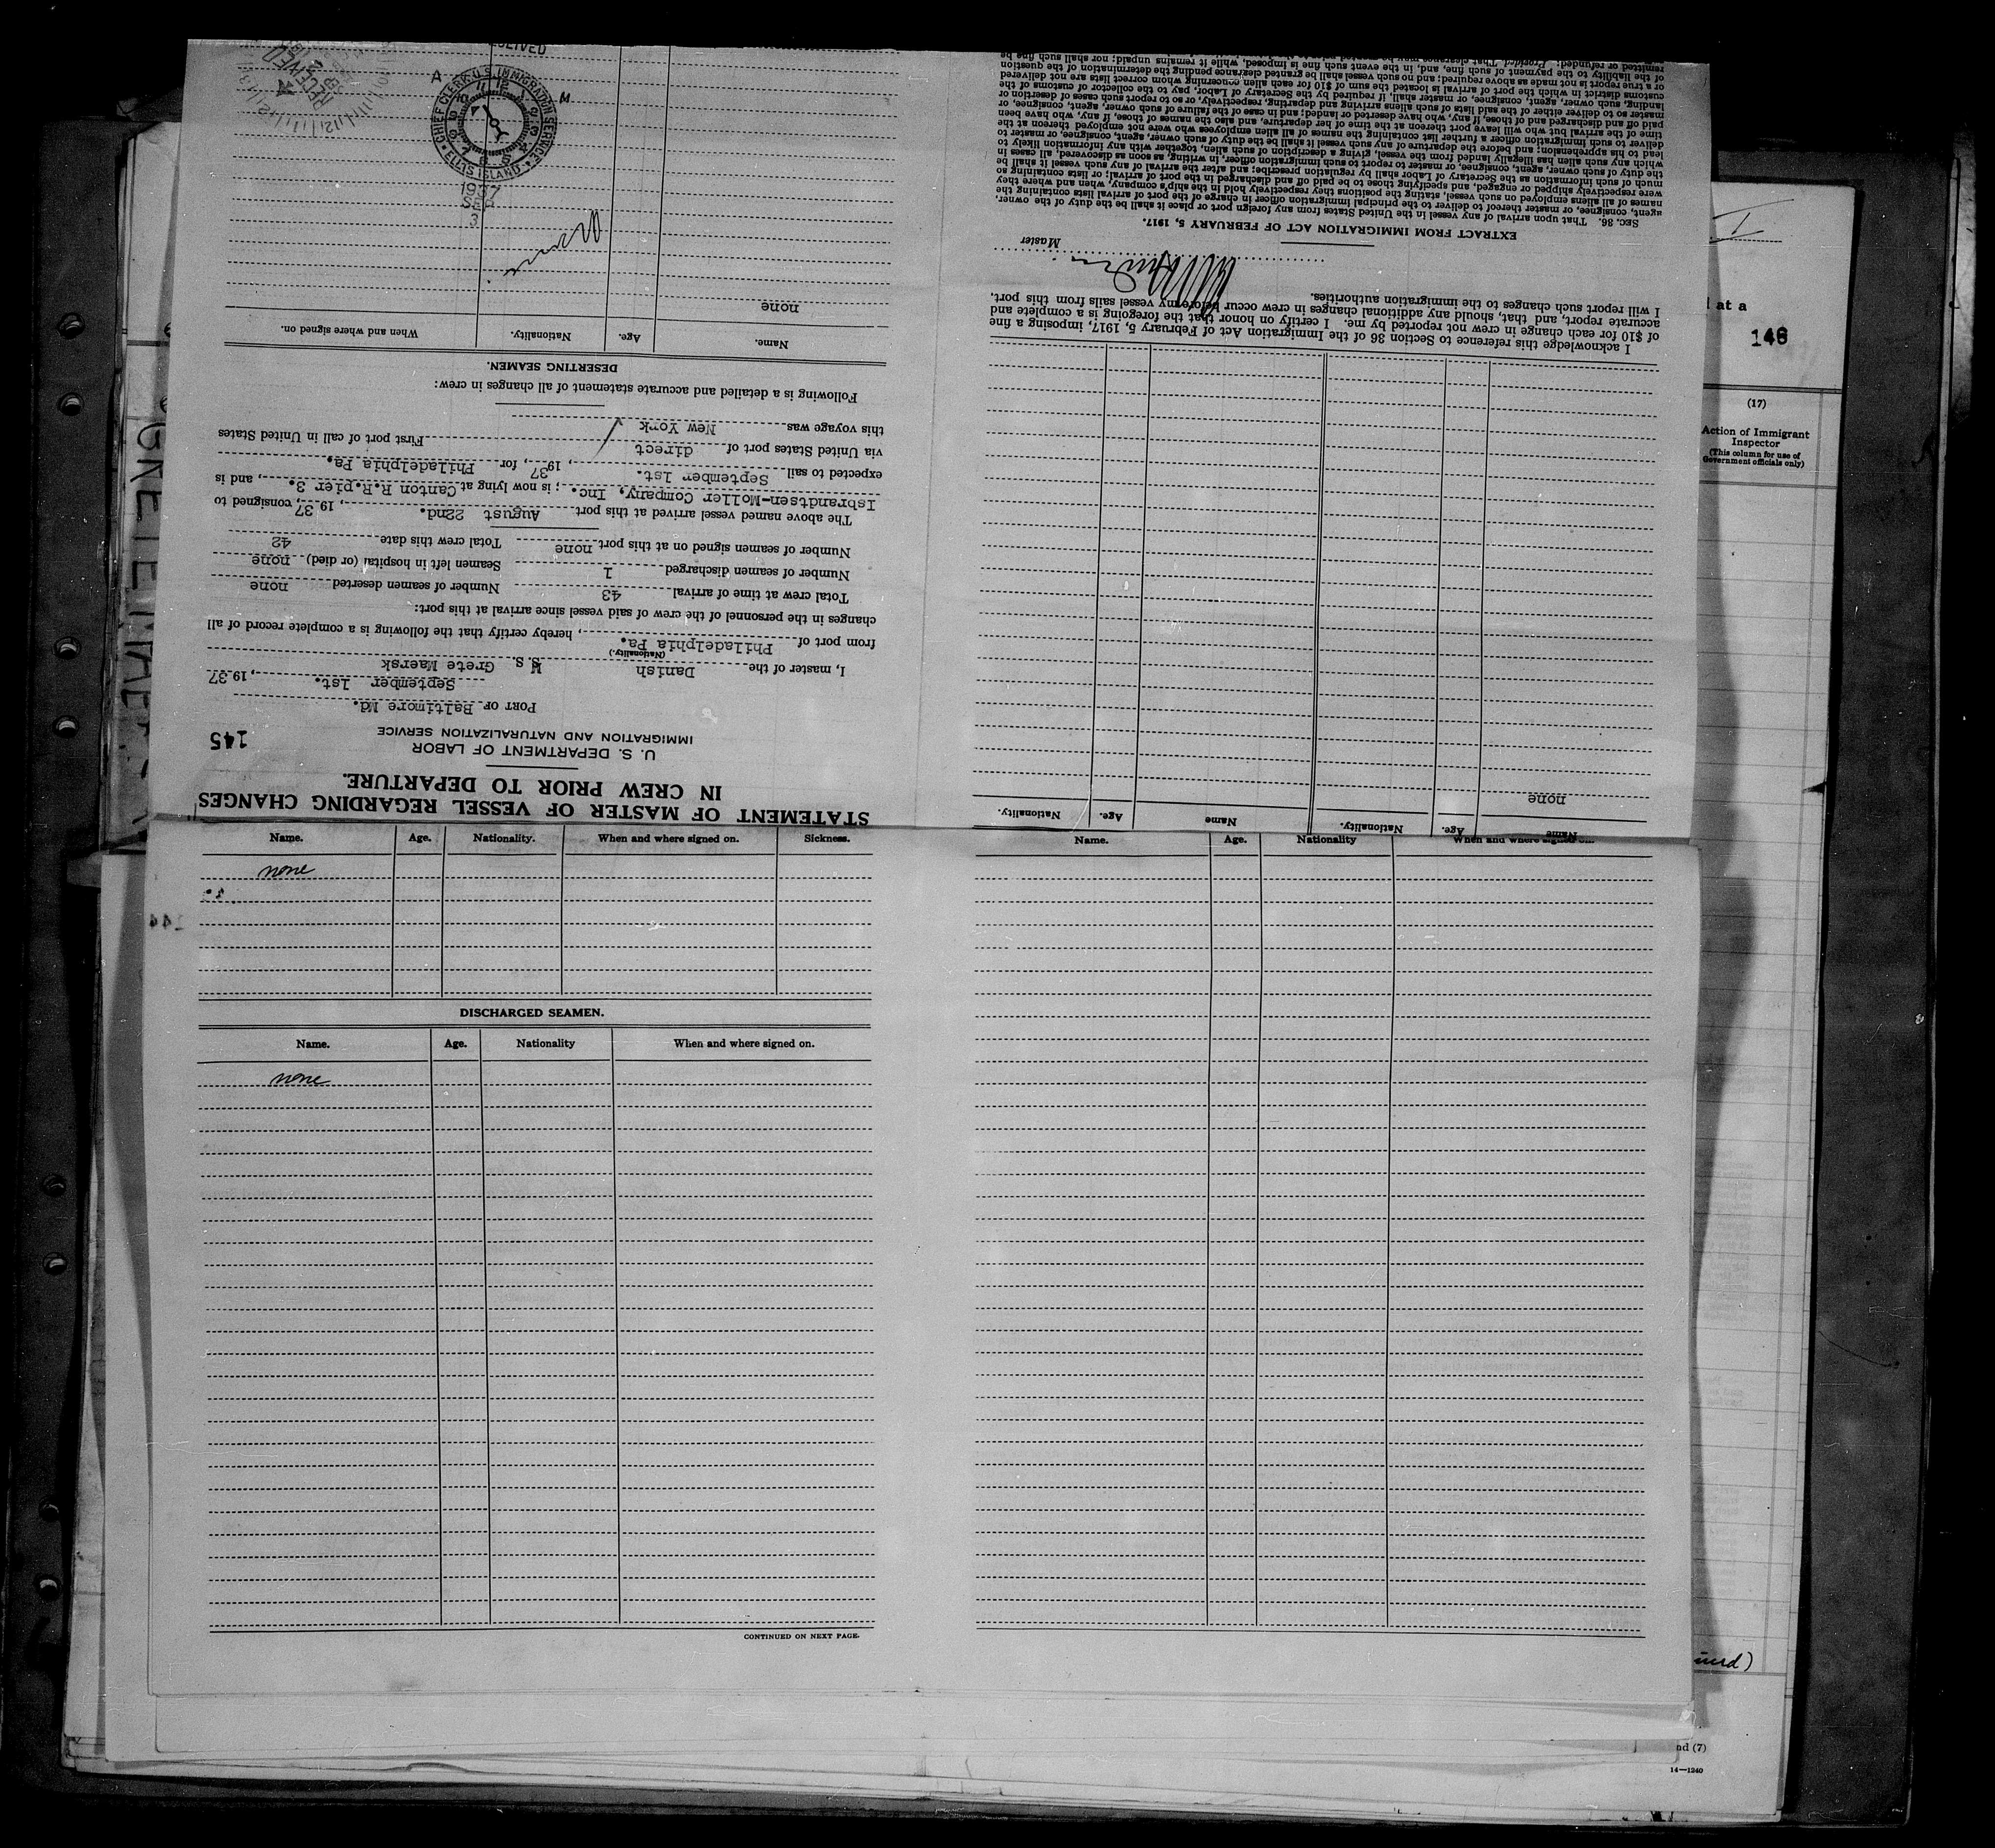 STATEMENT OF MASTER OF VESSEL REGARDING CHANGES
IN CREW PRIOR TO DEPARTURE.
U. S. DEPARTMENT OF LABOR
IMMIGRATION AND NATURALIZATION SERVICE
145
PORT OF Baltimore Md.
September 1st. , 1937
I, master of the Danish M S.S. Grete Maersk
(Nationality.)
from port of Philadelphia Pa. , hereby certify that the following is a complete record of all
changes in the personnel of the crew of said vessel since arrival at this port:
Total crew at time of arrival 43 Number of seamen deserted none
Number of seamen discharged 1 Seamen left in hospital (or died) none
Number of seamen signed on at this port none Total crew this date 42
The above named vessel arrived at this port August 22nd. , 1937, consigned to
Isbrandtsen-Moller Company, Inc. ; is now lying at Canton R.R.pier 3. , and is
expected to sail September 1st. , 1937, for Philadelphia Pa.
via United States port of direct First port of call in United States
this voyage was New York
Following is a detailed and accurate statement of all changes in crew:
DESERTING SEAMEN.
Name. Age. Nationality. When and where signed on.
none
CHIEF CLERK U.S. IMMIGRATION SERVICE
ELLIS ISLAND
A M
1937
SEP
3
RECEIVED
Name Age. Nationality. Name Age. Nationality.
none
I acknowledge this reference to Section 36 of the Immigration Act of February 5, 1917, imposing a fine
of $10 for each change in crew not reported by me. I certify on honor that the foregoing is a complete and
accurate report, and that, should any additional changes in crew occur before my vessel sails from this port,
I will report such changes to the immigration authorities.
Master
EXTRACT FROM IMMIGRATION ACT OF FEBRUARY 5, 1917.
SEC. 36. That upon arrival of any vessel in the United States from any foreign port or place it shall be the duty of the owner,
agent, consignee, or master thereof to deliver to the principal immigration officer in charge of the port of arrival lists containing the
names of all aliens employed on such vessel, stating the positions they respectively hold in the ship's company, when and where they
were respectively shipped or engaged, and specifying those to be paid off and discharged in the port of arrival; or lists containing so
much of such information as the Secretary of Labor shall by regulation prescribe; and after the arrival of any such vessel it shall be
the duty of such owner, agent, consignee, or master to report to such immigration officer, in writing, as soon as discovered, all cases in
which any such alien has illegally landed from the vessel, giving a description of such alien, together with any information likely to
lead to his apprehension; and before the departure of any such vessel it shall be the duty of such owner, agent, consignee, or master to
deliver to such immigration officer a further list containing the names of all alien employees who were not employed thereon at the
time of the arrival but who will leave port thereon at the time of her departure, and also the names of those, if any, who have been
paid off and discharged and of those, if any, who have deserted or landed; and in case of the failure of such owner, agent, consignee, or
master so to deliver either of the said lists of such aliens arriving and departing, respectively, or so to report such cases of desertion or
landing, such owner, agent, consignee, or master shall, if required by the Secretary of Labor, pay to the collector of customs of the
customs district in which the port of arrival is located the sum of $10 for each alien concerning whom correct lists are not delivered
or a true report is not made as above required; and no such vessel shall be granted clearance pending the determination of the question
of the liability to the payment of such fine, and, in the event such fine is imposed, while it remains unpaid; nor shall such fine be
remitted or refunded:
Name. Age. Nationality. When and where signed on. Sickness.
none
144
DISCHARGED SEAMEN.
Name. Age. Nationality When and where signed on.
none
CONTINUED ON NEXT PAGE.
Name. Age. Nationality When and where signed on.
at a
146
(17)
Action of Immigrant
Inspector
(This column for use of
Government officials only)
nd (7)
14—1240